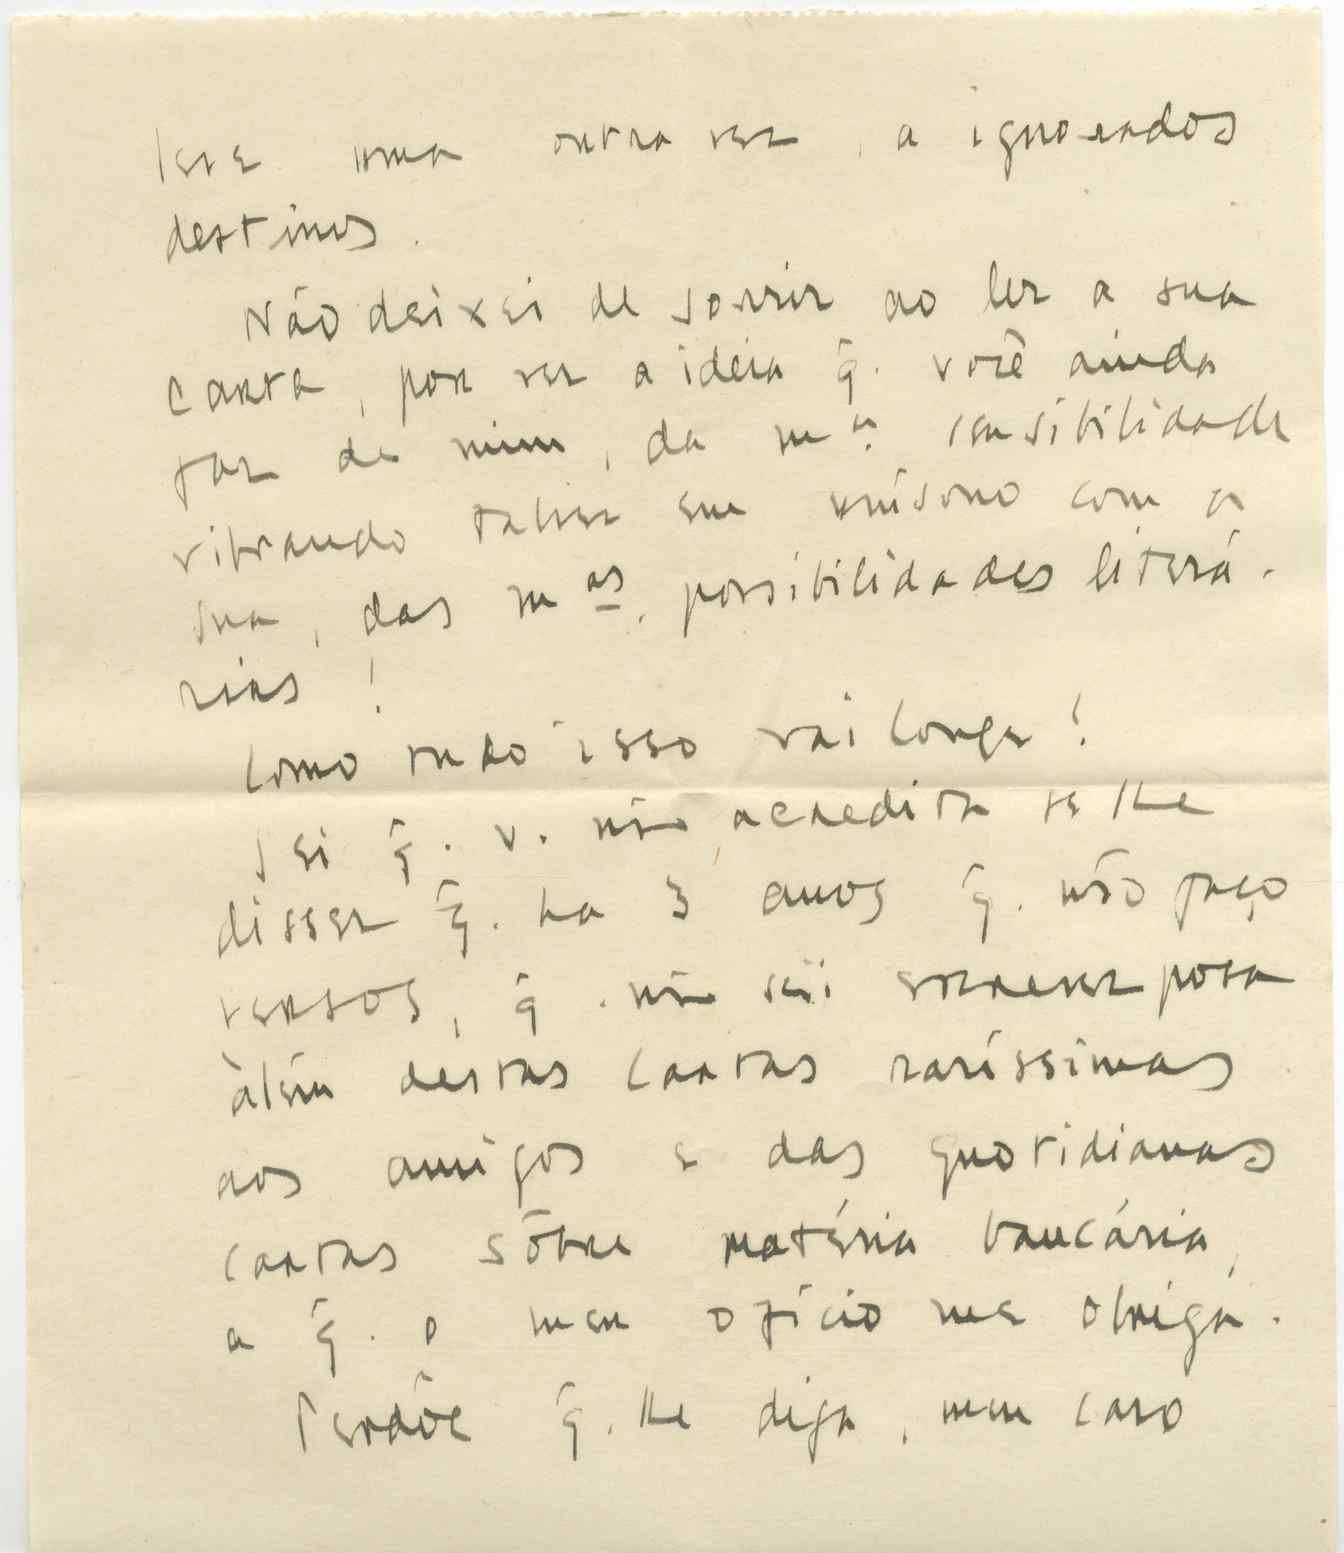 leve uma outra vez, a ignorados
destinos.
Não deixei de sorrir ao ler a sua
carta, por ver a ideia q̃. você ainda
faz de mim, da mª. sensibilidade
vibrando talvez em uníssono com a
sua, das mas. possibilidades literá-
rias!
Como tudo isso vai longe!
Sei q̃. v. não acredita se lhe
disser q̃. ha 3 anos q̃. não faço
versos, q̃. não sei escrever prosa
àlém destas cartas raríssimas
aos amigos e das quotidianas
cartas sôbre matéria bancária,
a q̃. o meu ofício me obriga.
Perdôe q̃. lhe diga, meu caro